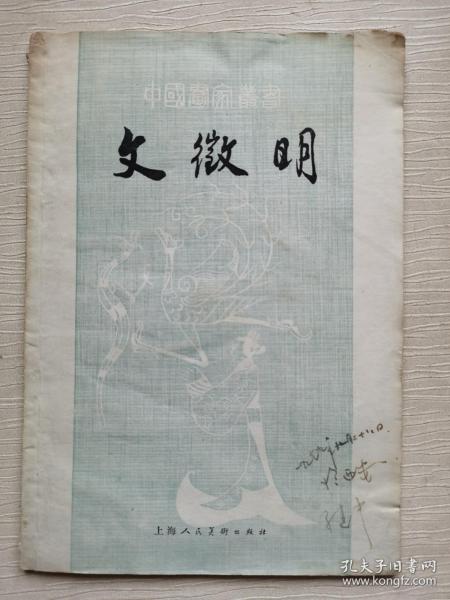 中國畫家叢書
文徵明
上海人民美術出版社
孔夫子旧书网
www.kongfz.com